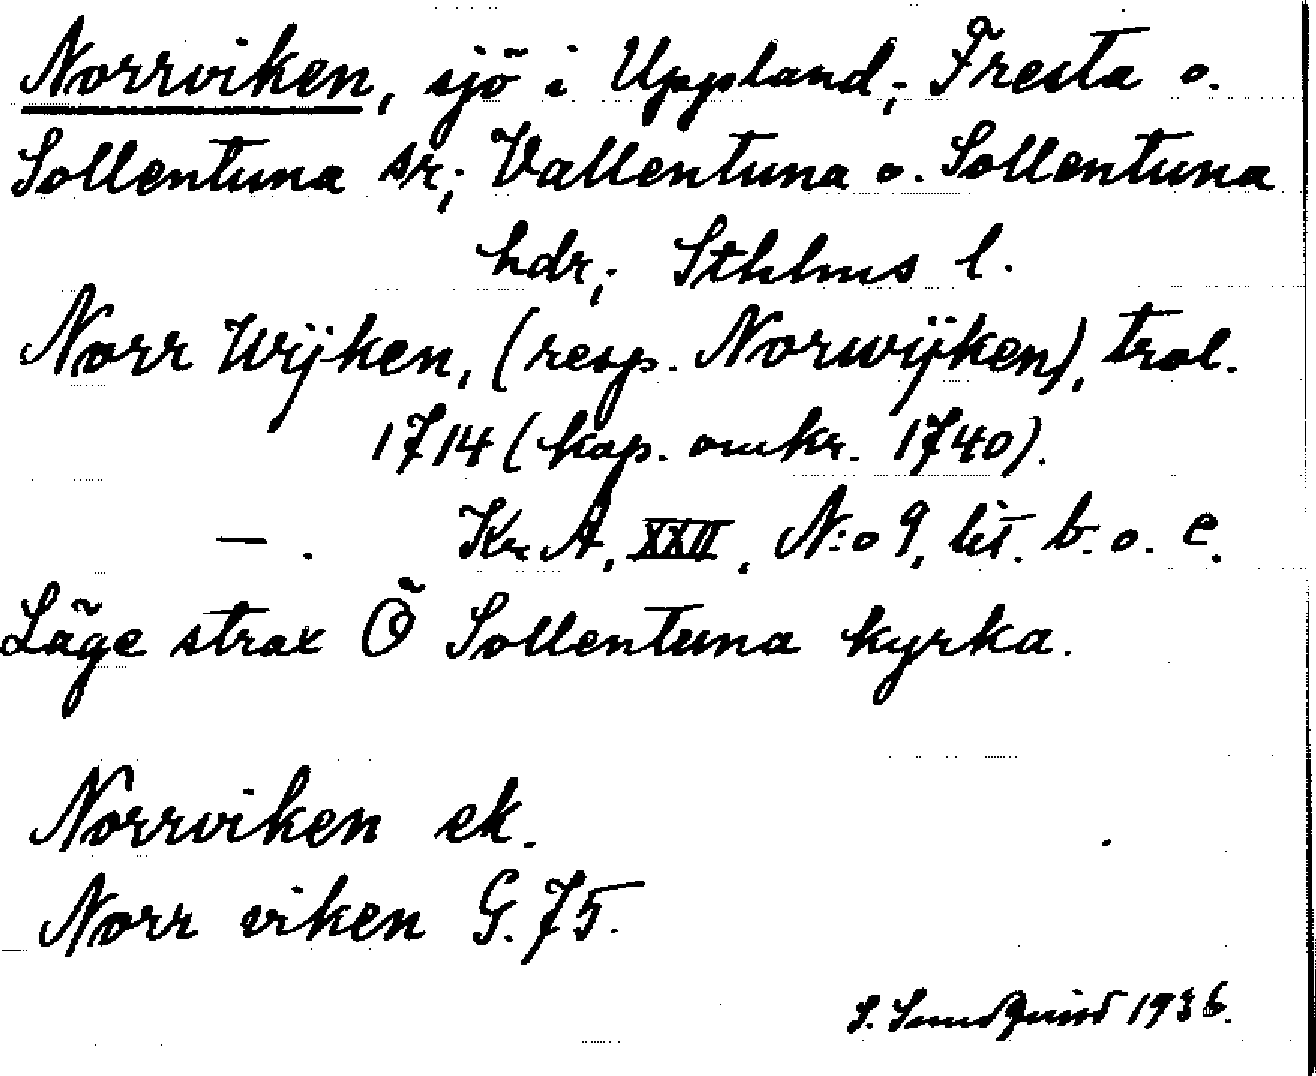 Norrviken, sjö i Uppland; Fresta o.
Sollentuna sr; Vallentuna o. Sollentuna
hdr; Sthlms l.
Norr Wijken, (resp. Norwijken), trol.
1714 (kop. omkr. 1740).
— . Kr. A, XXII, N:o 9, lit. b. o. c.
Läge strax Ö Sollentuna kyrka.
Norrviken ek.
Norr viken G. 75.
S. Sundquist 1936.